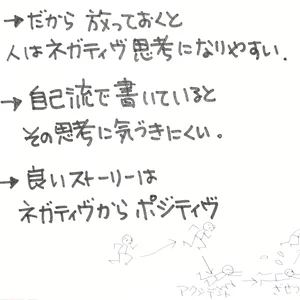 →だから 放っておくと
人はネガティヴ思考になりやすい.
→自己流で書いていると
その思考に気づきにくい。
→良いストーリーは
ネガティヴから ポジティヴ
アクシデント